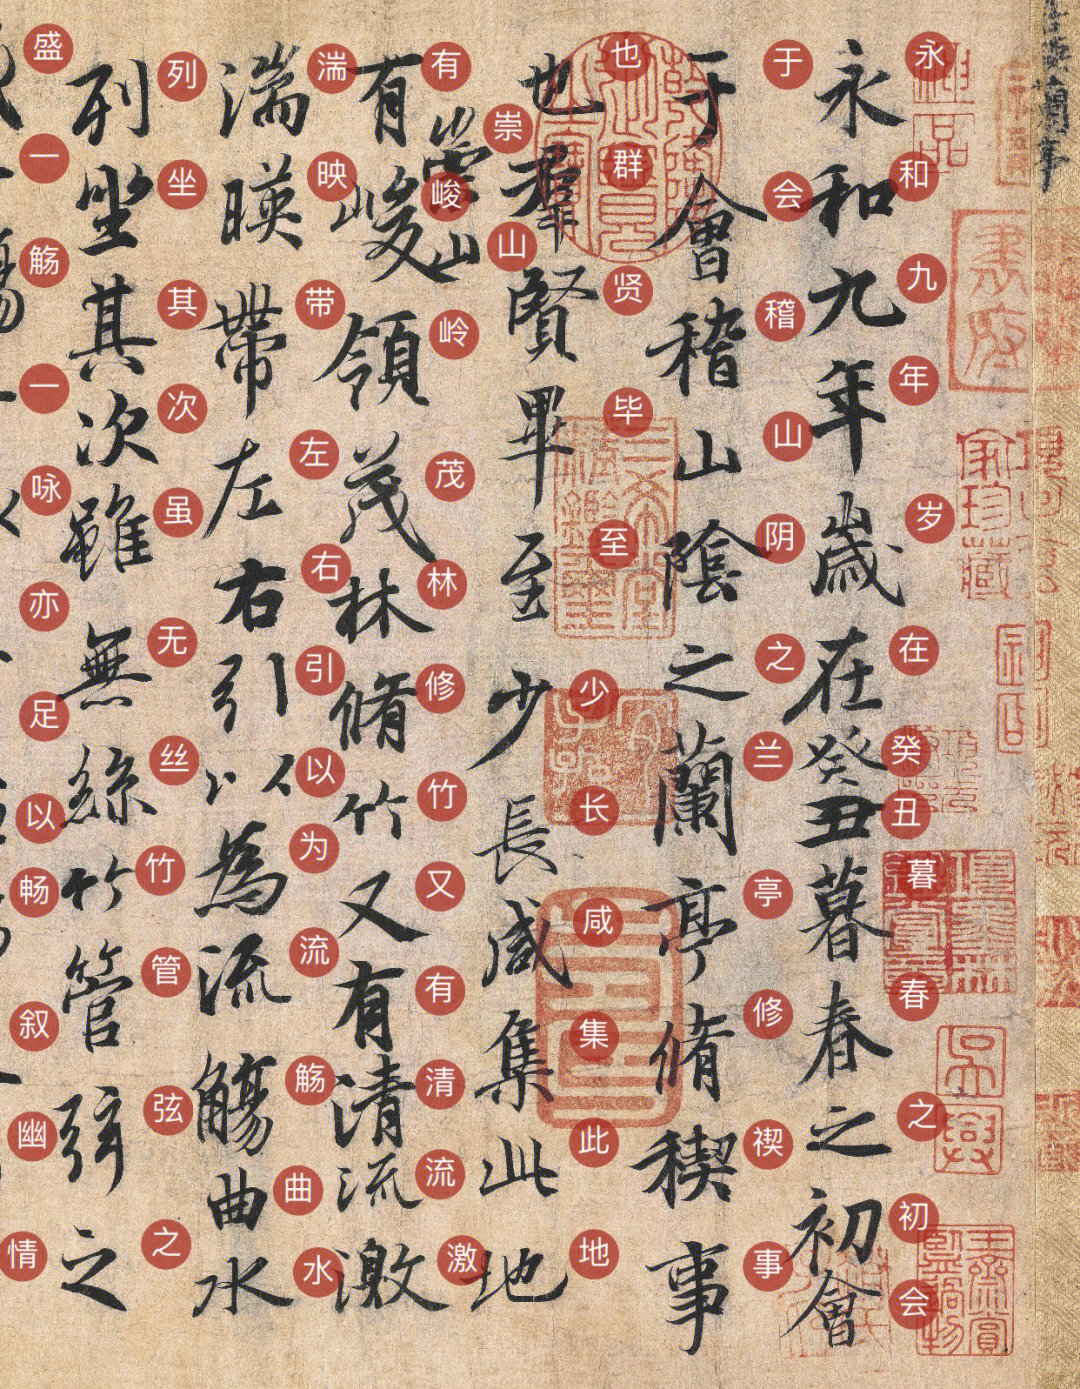 永和九年歲在癸丑暮春之初會
永和九年岁在癸丑暮春之初会
于會稽山陰之蘭亭脩稧事
于会稽山阴之兰亭修禊事
也羣賢畢至少長咸集此地
也群贤毕至少长咸集此地
崇山
崇山
有峻領茂林脩竹又有清流激
有峻岭茂林修竹又有清流激
湍暎帶左右引以為流觴曲水
湍映带左右引以为流觞曲水
列坐其次雖無絲竹管弦之
列坐其次虽无丝竹管弦之
盛一觞一咏亦足以畅叙幽情